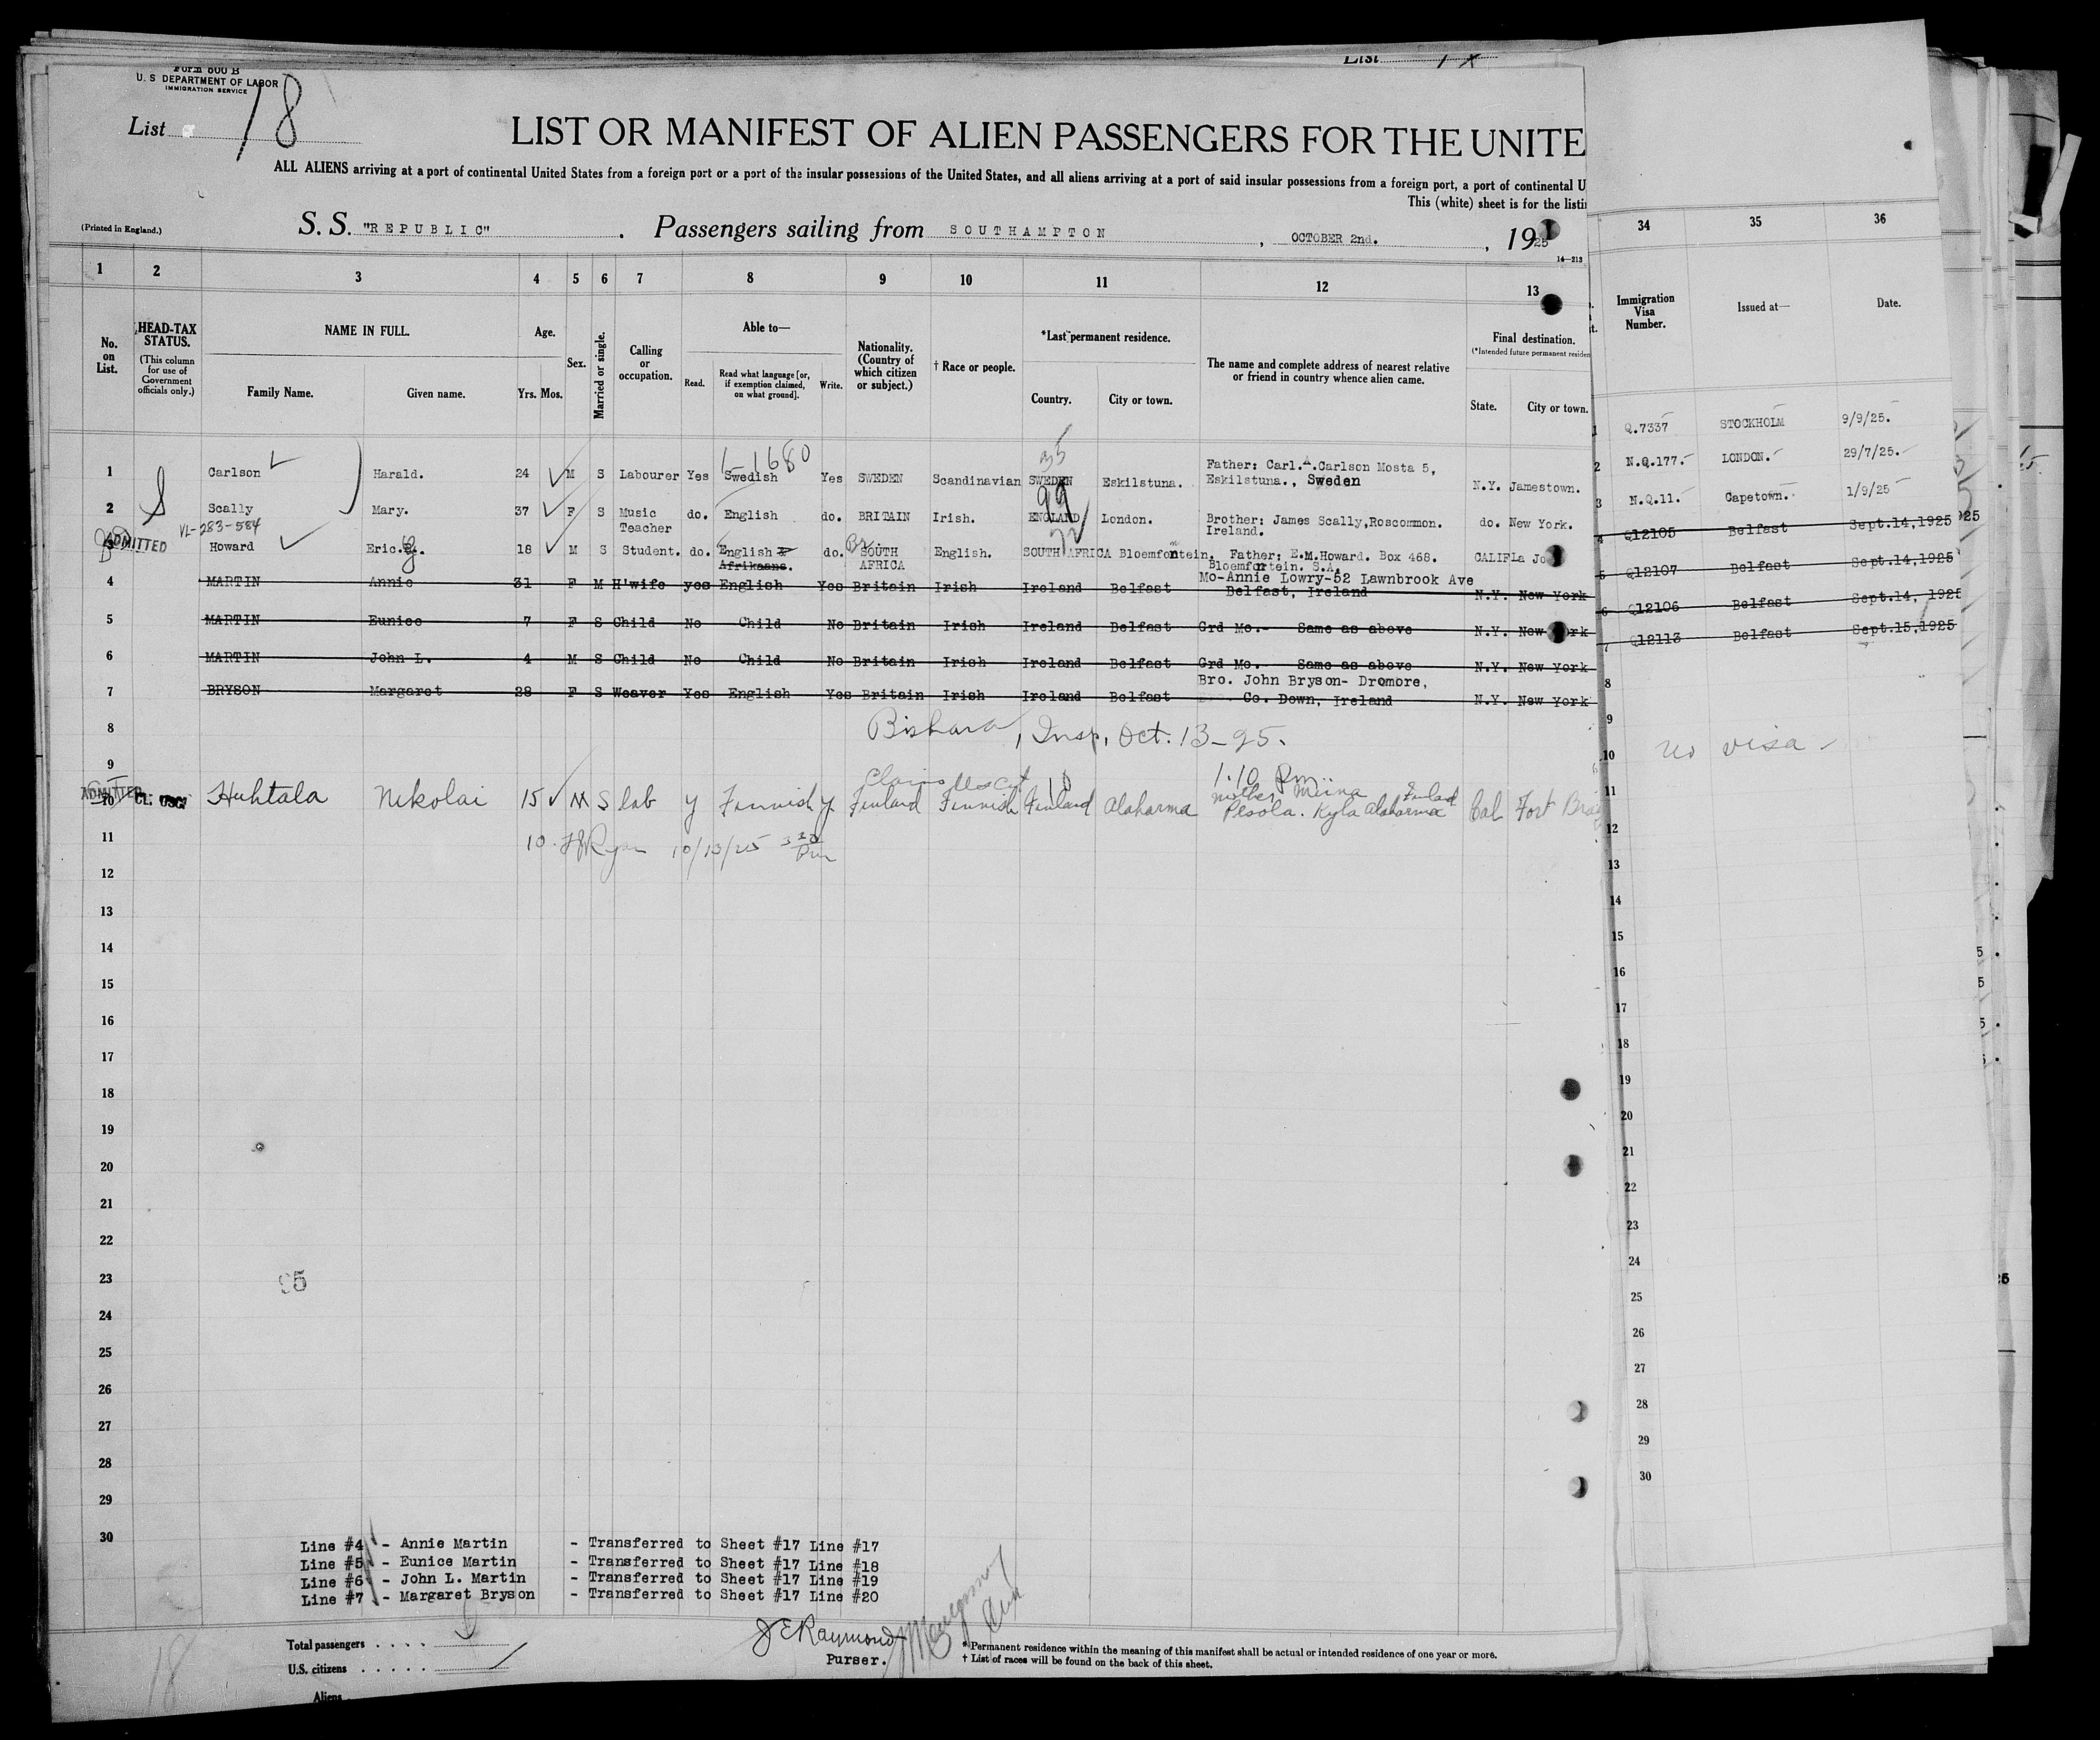 Form 600 B
U. S DEPARTMENT OF LABOR
IMMIGRATION SERVICE
List
List 18
LIST OR MANIFEST OF ALIEN PASSENGERS FOR THE UNITE
ALL ALIENS arriving at a port of continental United States from a foreign port or a port of the insular possessions of the United States, and all aliens arriving at a port of said insular possessions from a foreign port, a port of continental U
This (white) sheet is for the listi
(Printed in England.)
S. S. "REPUBLIC" . Passengers sailing from SOUTHAMPTON , OCTOBER 2nd. , 1925
14—213
1 2 3 4 5 6 7 8 9 10 11 12 13 34 35 36
No. on List.
HEAD-TAX STATUS.
(This column for use of Government officials only.)
NAME IN FULL.
Family Name. Given name.
Age.
Yrs. Mos.
Sex.
Married or single.
Calling or occupation.
Able to—
Read. Read what language [or, if exemption claimed, on what ground]. Write.
Nationality. (Country of which citizen or subject.)
† Race or people.
*Last permanent residence.
Country. City or town.
The name and complete address of nearest relative or friend in country whence alien came.
Final destination.
(*Intended future permanent residen
State. City or town.
Immigration Visa Number.
Issued at—
Date.
1 Carlson Harald. 24 M S Labourer Yes Swedish Yes SWEDEN Scandinavian SWEDEN Eskilstuna. Father: Carl.A.Carlson Mosta 5, Eskilstuna., Sweden N.Y. Jamestown.
1680
35
2 Scally Mary. 37 F S Music Teacher do. English do. BRITAIN Irish. ENGLAND London. Brother: James Scally,Roscommon. Ireland. do. New York.
99
VL-283-584
ADMITTED
3 Howard Eric.G. 18 M S Student. do. English Afrikaans. do. Br. SOUTH AFRICA English. SOUTH AFRICA Bloemfontein. Father: E.M.Howard. Box 468. Bloemfontein. S.A. CALIF La Jo
72
4 MARTIN Annie 31 F M H'wife yes English Yes Britain Irish Ireland Belfast Mo-Annie Lowry-52 Lawnbrook Ave Belfast, Ireland N.Y. New York
5 MARTIN Eunice 7 F S Child No Child No Britain Irish Ireland Belfast Grd Mo.- Same as above N.Y. New York
6 MARTIN John L. 4 M S Child No Child No Britain Irish Ireland Belfast Grd Mo.- Same as above N.Y. New York
7 BRYSON Margaret 28 F S Weaver Yes English Yes Britain Irish Ireland Belfast Bro. John Bryson- Dromore, Co. Down, Ireland N.Y. New York
8 Bishara, Insp, Oct. 13-25.
9
Claims
1:10 Pm
ADMITTED
10 CL: USC Huhtala Nikolai 15 M S lab y Finnish y Finland Finnish Finland Alaharma mother Miina Pesola. Kyla Alaharma Finland Cal Fort Bra
11 10. Ryan 10/13/25 3 30 Pm
12
13
14
15
16
17
18
19
20
21
22
23
95
24
25
26
27
28
29
30
1 Q.7337 STOCKHOLM 9/9/25.
2 N.Q.177. LONDON. 29/7/25.
3 N.Q.11. Capetown. 1/9/25
4 Q12105 Belfast Sept.14,1925
5 Q12107 Belfast Sept.14,1925
6 Q12106 Belfast Sept.14, 1925
7 Q12113 Belfast Sept.15,1925
8
9
10 no visa
11
12
13
14
15
16
17
18
19
20
21
22
23
24
25
26
27
28
29
30
Line #4 - Annie Martin - Transferred to Sheet #17 Line #17
Line #5 - Eunice Martin - Transferred to Sheet #17 Line #18
Line #6 - John L. Martin - Transferred to Sheet #17 Line #19
Line #7 - Margaret Bryson - Transferred to Sheet #17 Line #20
Total passengers . . . .
U.S. citizens . . . . .
Aliens
18
J E Raymond
Purser.
* Permanent residence within the meaning of this manifest shall be actual or intended residence of one year or more.
† List of races will be found on the back of this sheet.